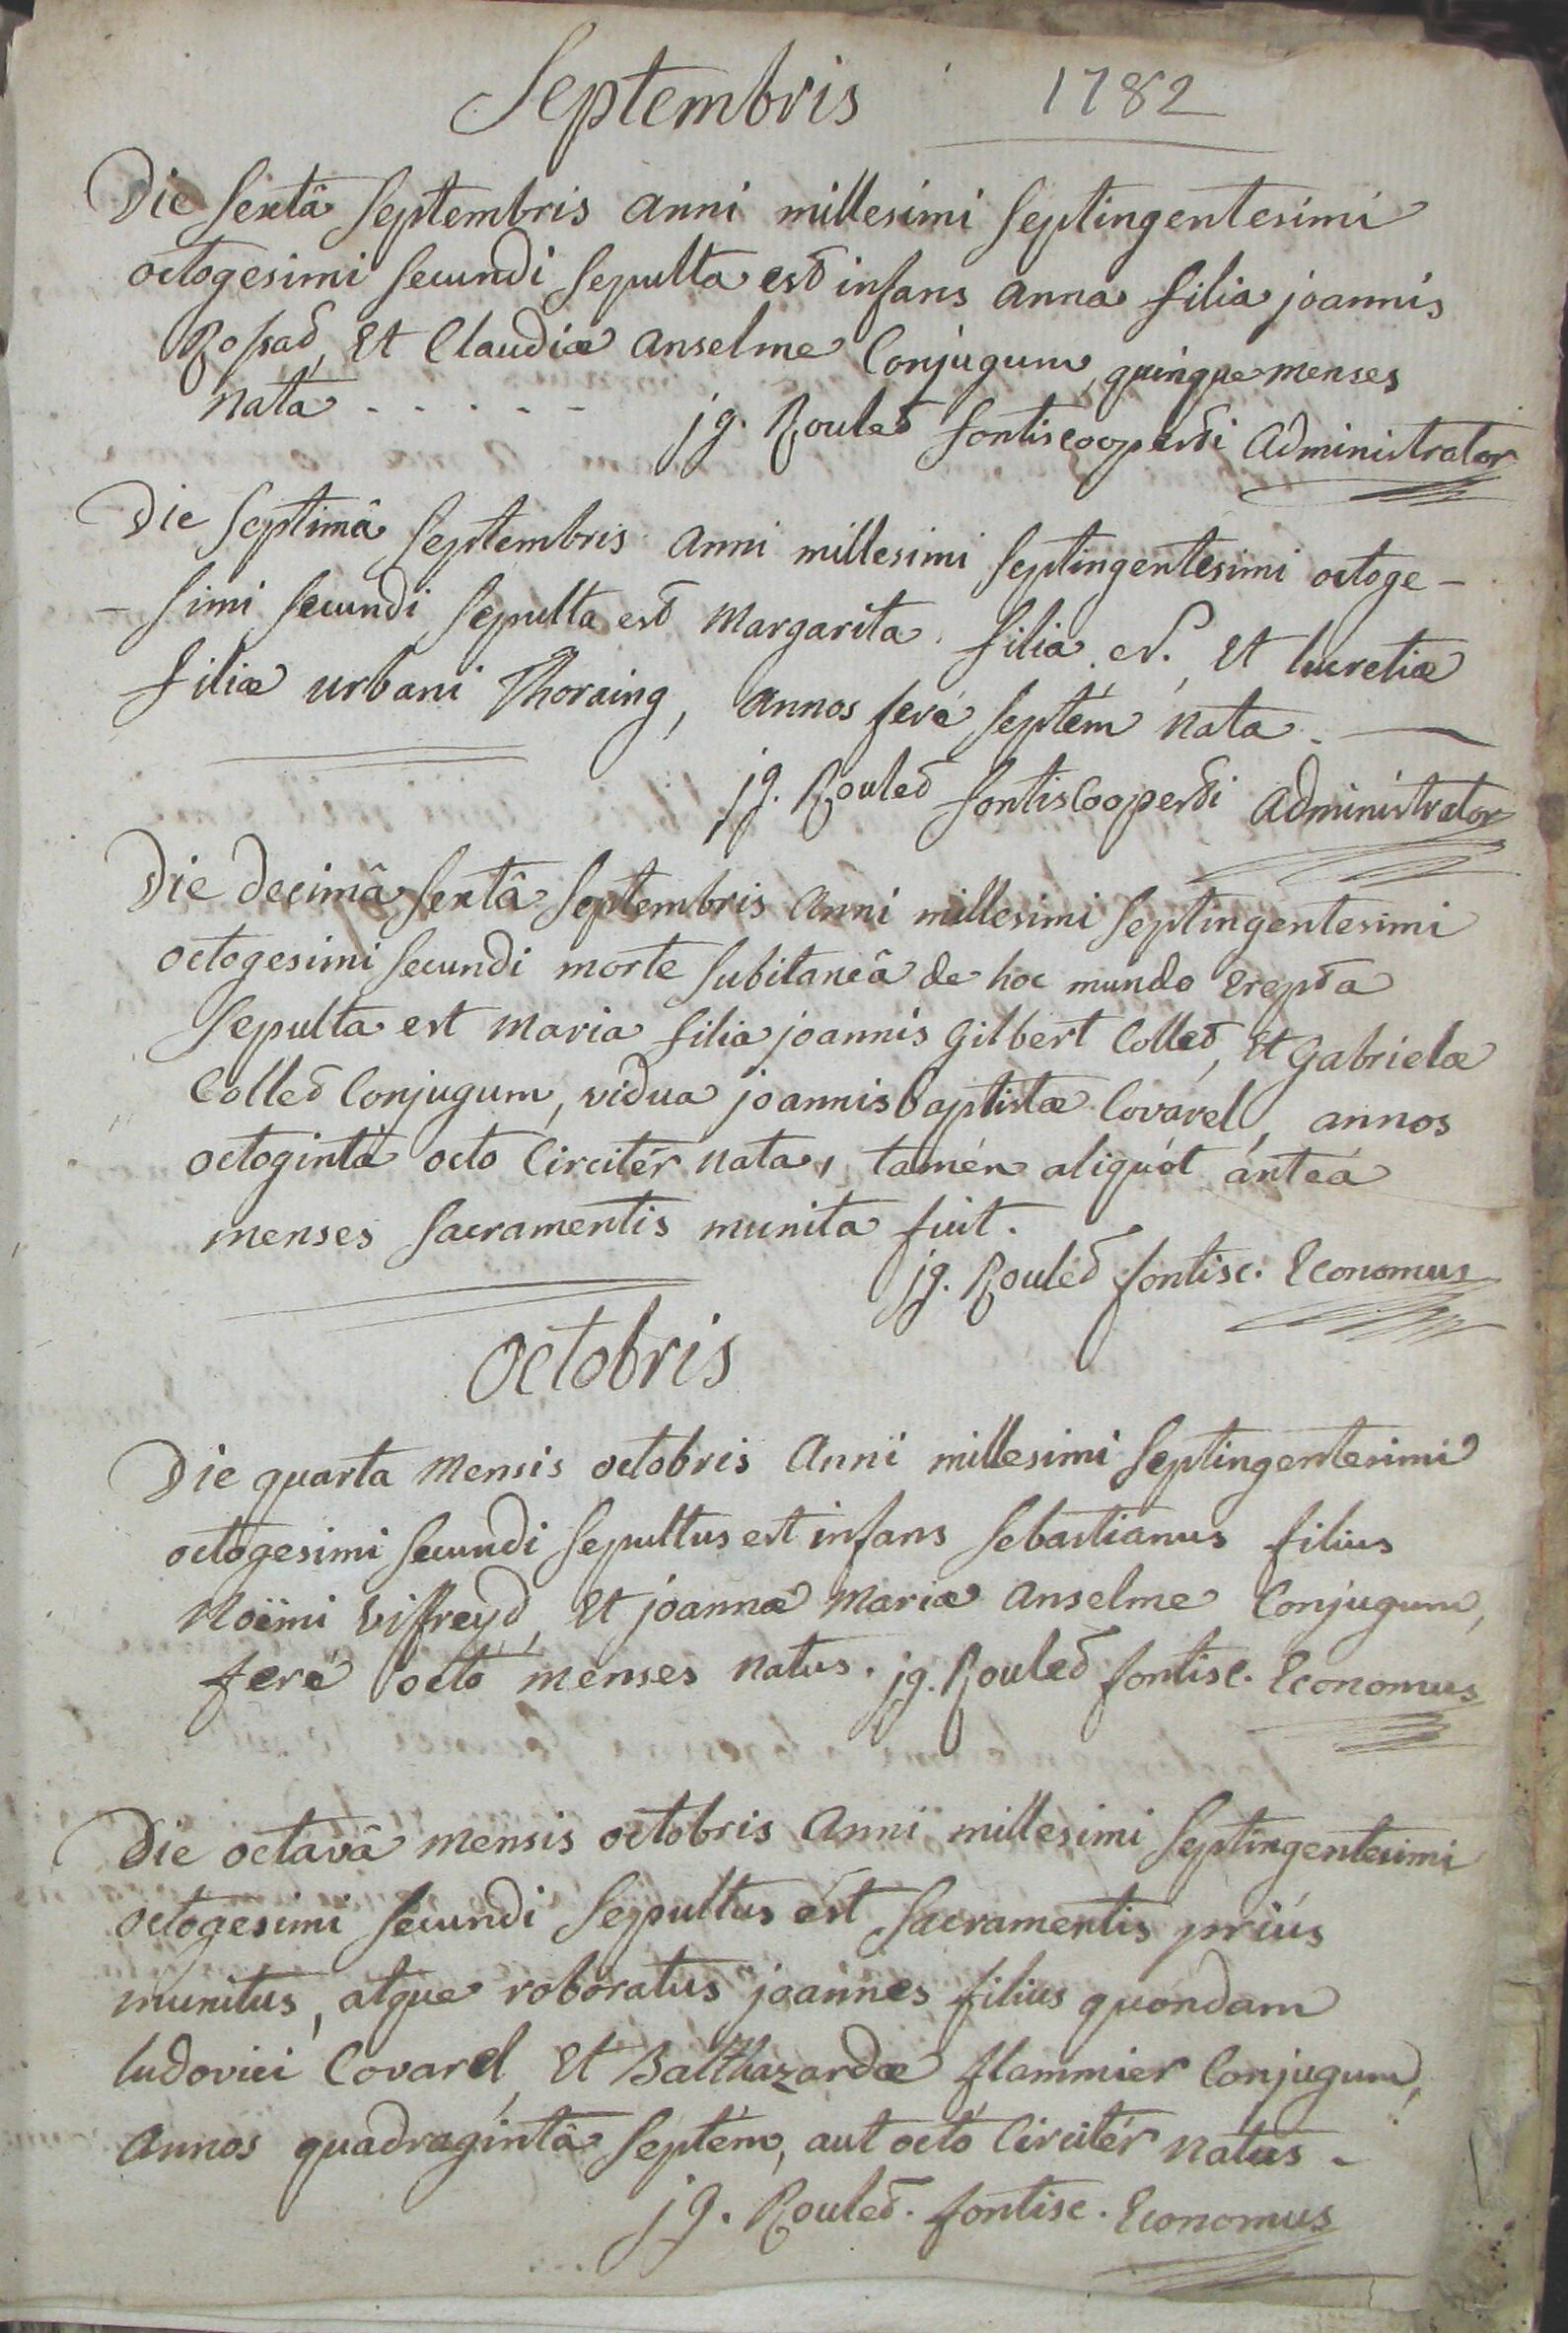 Septembris 1782
Die sextâ septembris anni millesimi septingentesimi
octogesimi secundi sepulta est infans anna filia joannis
Rossat, Et Claudiæ anselme Conjugum, quinque menses
nata - - - - -
jg. Roulet fontiscooperti administrator
Die septimâ septembris anni millesimi septingentesimi octoge-
- simi secundi sepulta est Margarita filia et Lucretiæ
filiæ urbani Thoraing, annos feré septém nata.
jg. Roulet fontiscooperti administrator
Die decimâ sextâ septembris anni millesimi septingentesimi
octogesimi secundi morte subitaneâ de hoc mundo Erepta
sepulta est Maria filia joannis gilbert Collet, Et gabrielæ
Collet Conjugum, vidua joannis baptistæ Covarel, annos
octogintá octo Circitér nata, tamén aliquót ánteá
menses sacramentis munita fuit.
jg. Roulet fontisc. Economus
Octobris
Die quarta Mensis octobris anni millesimi septingentesimi
octogesimi secundi sepultus est infans sebastianus filius
Noëmi Vifreyd, Et joannæ Mariæ anselme Conjugum,
feré octó menses natus. jg. Roulet fontisc. Economus
Die octavâ mensis octobris anni millesimi septingentesimi
octogesimi secundi sepultus ést sacramentis priús
munitus, atque roboratus joannes filius quondam
ludovici Covarel, Et Balthazardæ flammier Conjugum,
annos quadragíntâ septém, aut octó Circitér natus -
jg. Roulet. fontisc. Economus